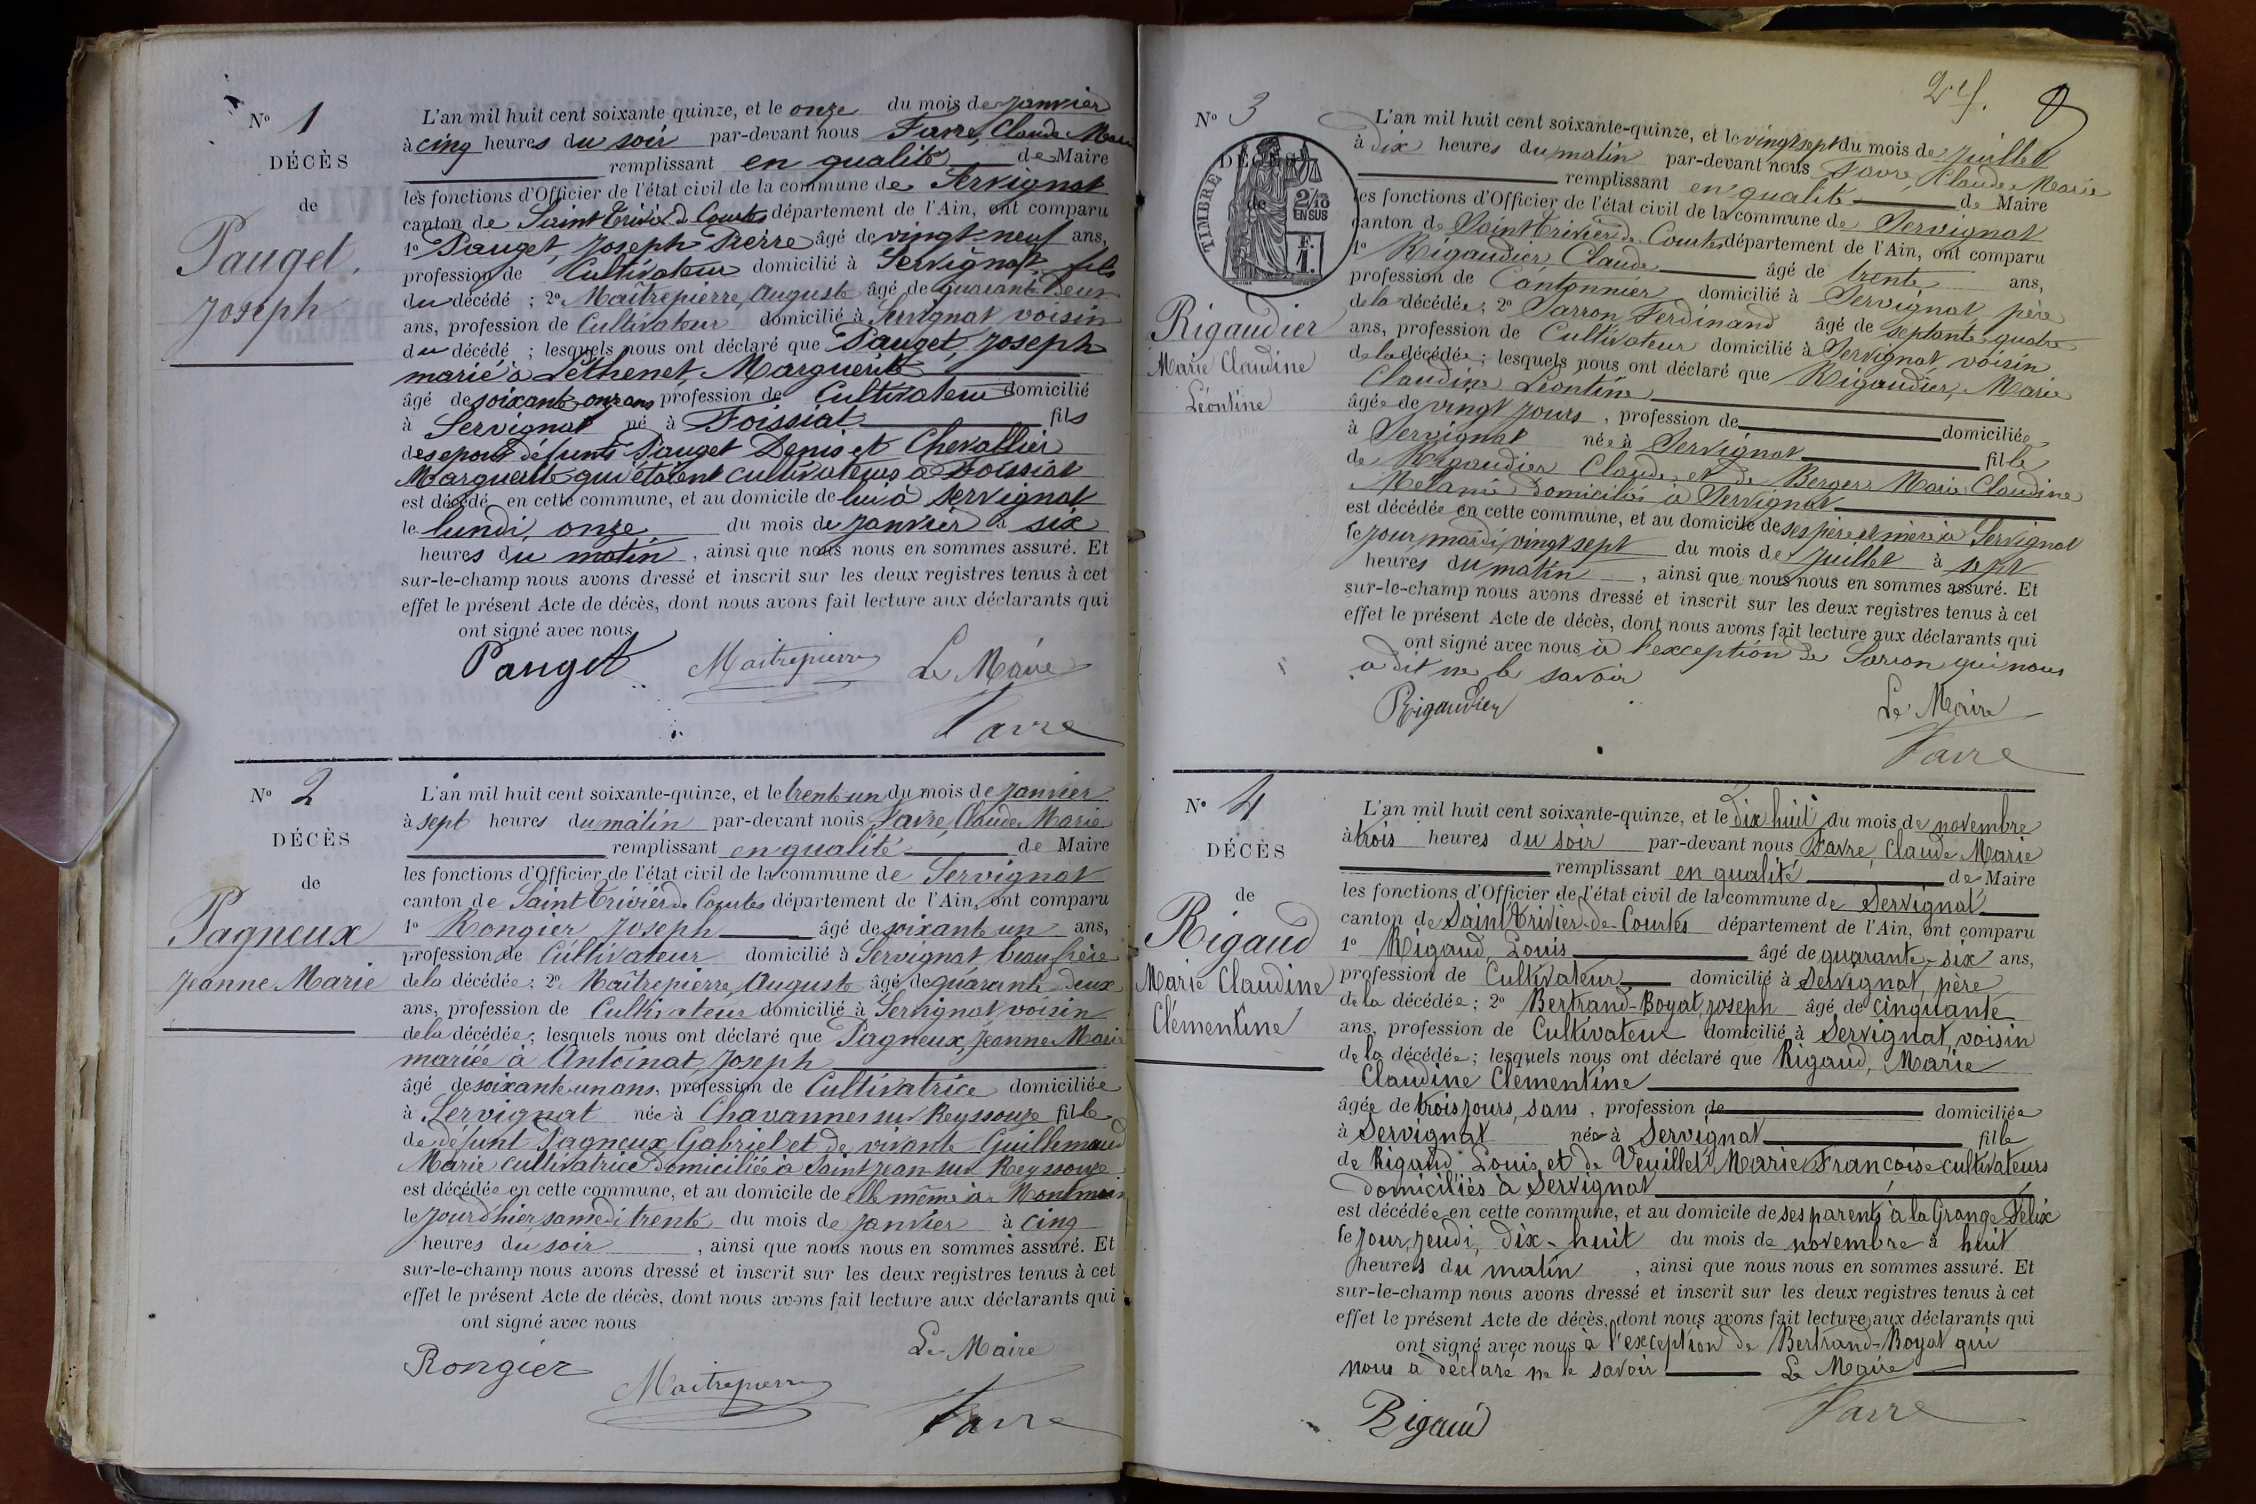 N° 1
DÉCÈS
de
Pauget,
Joseph
L'an mil huit cent soixante quinze, et le onze du mois de Janvier
à cinq heures du soir par-devant nous Favre, Claude Marie
remplissant en qualité de Maire
les fonctions d'Officier de l'état civil de la commune de Servignat
canton de Saint Trivier de Courtes département de l'Ain, ont comparu
1° Pauget, Joseph Pierre âgé de vingt-neuf ans,
profession de Cultivateur domicilié à Servignat, fils
du décédé ; 2° Maîtrepierre, Auguste âgé de quarante deux
ans, profession de Cultivateur domicilié à Servignat voisin
du décédé ; lesquels nous ont déclaré que Pauget, Joseph
marié à Péthenet, Marguerite
âgé de soixante-onze ans profession de Cultivateur domicilié
à Servignat né à Foissiat fils
des époux défunts Pauget Denis et Chevallier
Marguerite qui étaient cultivateurs à Foissiat
est décédé en cette commune, et au domicile de lui à Servignat
le lundi, onze du mois de Janvier à six
heures du matin, ainsi que nous nous en sommes assuré. Et
sur-le-champ nous avons dressé et inscrit sur les deux registres tenus à cet
effet le présent Acte de décès, dont nous avons fait lecture aux déclarants qui
ont signé avec nous
Pauget Maitrepierre Le Maire
Favre
N° 2
DÉCÈS
de
Pagneux
Jeanne Marie
L'an mil huit cent soixante-quinze, et le trente un du mois de Janvier
à sept heures du matin par-devant nous Favre, Claude Marie
remplissant en qualité de Maire
les fonctions d'Officier de l'état civil de la commune de Servignat
canton de Saint Trivier de Courtes département de l'Ain, ont comparu
1° Rongier Joseph âgé de soixante un ans,
profession de Cultivateur domicilié à Servignat beau frère
de la décédée ; 2° Maîtrepierre, Auguste âgé de quarante deux
ans, profession de Cultivateur domicilié à Servignat voisin
de la décédée ; lesquels nous ont déclaré que Pagneux, Jeanne Marie
mariée à Antoinat, Joseph
âgé de soixante un ans, profession de Cultivatrice domiciliée
à Servignat née à Chavannes sur Reyssouze fille
de défunt Pagneux Gabriel et de vivante Guillemaud
Marie cultivatrice domiciliée à Saint Jean sur Reyssouze
est décédée en cette commune, et au domicile de elle même à Montmain
le jour d'hier, samedi trente du mois de Janvier à cinq
heures du soir, ainsi que nous nous en sommes assuré. Et
sur-le-champ nous avons dressé et inscrit sur les deux registres tenus à cet
effet le présent Acte de décès, dont nous avons fait lecture aux déclarants qui
ont signé avec nous
Le Maire
Rongier Maitrepierre Favre
N° 3
DÉCÈS
de
TIMBRE
2/10
EN SUS
F.
1.
Rigaudier
Marie Claudine
Léontine
L'an mil huit cent soixante-quinze, et le vingt sept du mois de Juillet
à dix heures du matin par-devant nous Favre, Claude Marie
remplissant en qualité de Maire
les fonctions d'Officier de l'état civil de la commune de Servignat
canton de Saint Trivier de Courtes département de l'Ain, ont comparu
1° Rigaudier Claude âgé de trente ans,
profession de Cantonnier domicilié à Servignat père
de la décédée ; 2° Sarron Ferdinand âgé de septante-quatre
ans, profession de Cultivateur domicilié à Servignat, voisin
de la décédée ; lesquels nous ont déclaré que Rigaudier, Marie
Claudine Léontine
âgée de vingt jours, profession de domiciliée
à Servignat née à Servignat fille
de Rigaudier Claude et de Berger Marie Claudine
Mélanie domiciliés à Servignat
est décédée en cette commune, et au domicile de ses père et mère à Servignat
le jour, mardi, vingt sept du mois de Juillet à sept
heures du matin, ainsi que nous nous en sommes assuré. Et
sur-le-champ nous avons dressé et inscrit sur les deux registres tenus à cet
effet le présent Acte de décès, dont nous avons fait lecture aux déclarants qui
ont signé avec nous à l'exception de Sarron qui nous
a dit ne le savoir
Rigaudier Le Maire
Favre
N° 4
DÉCÈS
de
Rigaud
Marie Claudine
Clémentine
L'an mil huit cent soixante-quinze, et le dix huit du mois de novembre
à trois heures du soir par-devant nous Favre, Claude Marie
remplissant en qualité de Maire
les fonctions d'Officier de l'état civil de la commune de Servignat
canton de Saint Trivier-de-Courtes département de l'Ain, ont comparu
1° Rigaud, Louis âgé de quarante-six ans,
profession de Cultivateur domicilié à Servignat, père
de la décédée ; 2° Bertrand-Boyat, Joseph âgé de cinquante
ans, profession de Cultivateur domicilié à Servignat, voisin
de la décédée ; lesquels nous ont déclaré que Rigaud, Marie
Claudine Clementine
âgée de trois jours, sans, profession de domiciliée
à Servignat née à Servignat fille
de Rigaud Louis et de Veuillet Marie Françoise cultivateurs
domiciliés à Servignat
est décédée en cette commune, et au domicile de ses parents à la Grange Félix
le jour, jeudi, dix-huit du mois de novembre à huit
heures du matin, ainsi que nous nous en sommes assuré. Et
sur-le-champ nous avons dressé et inscrit sur les deux registres tenus à cet
effet le présent Acte de décès, dont nous avons fait lecture aux déclarants qui
ont signé avec nous à l'exception de Bertrand-Boyat qui
nous a déclaré ne le savoir Le Maire
Rigaud Favre